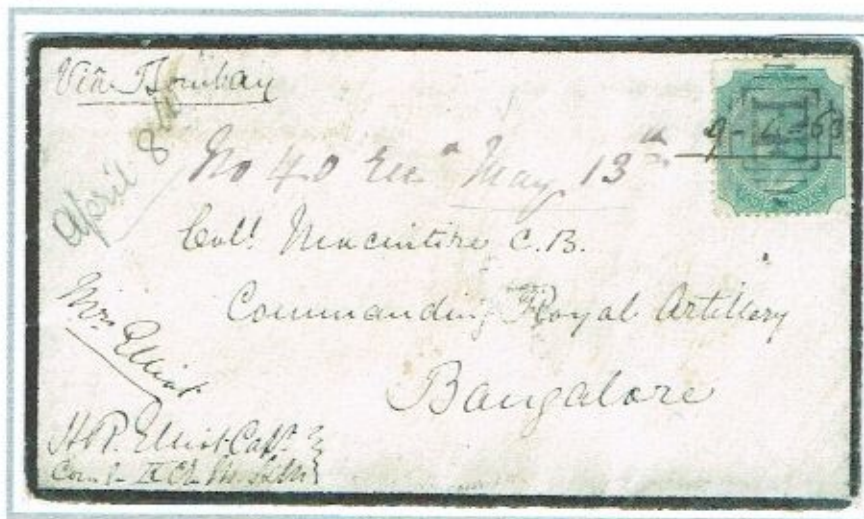 Via Bombay
April 8th
No 40 Rec.d May 13th
9-4-63
Coll. Macintire C.B.
Commanding Royal Artillery
Bangalore
Mrs Elliot
H.P. Elliot Capt.